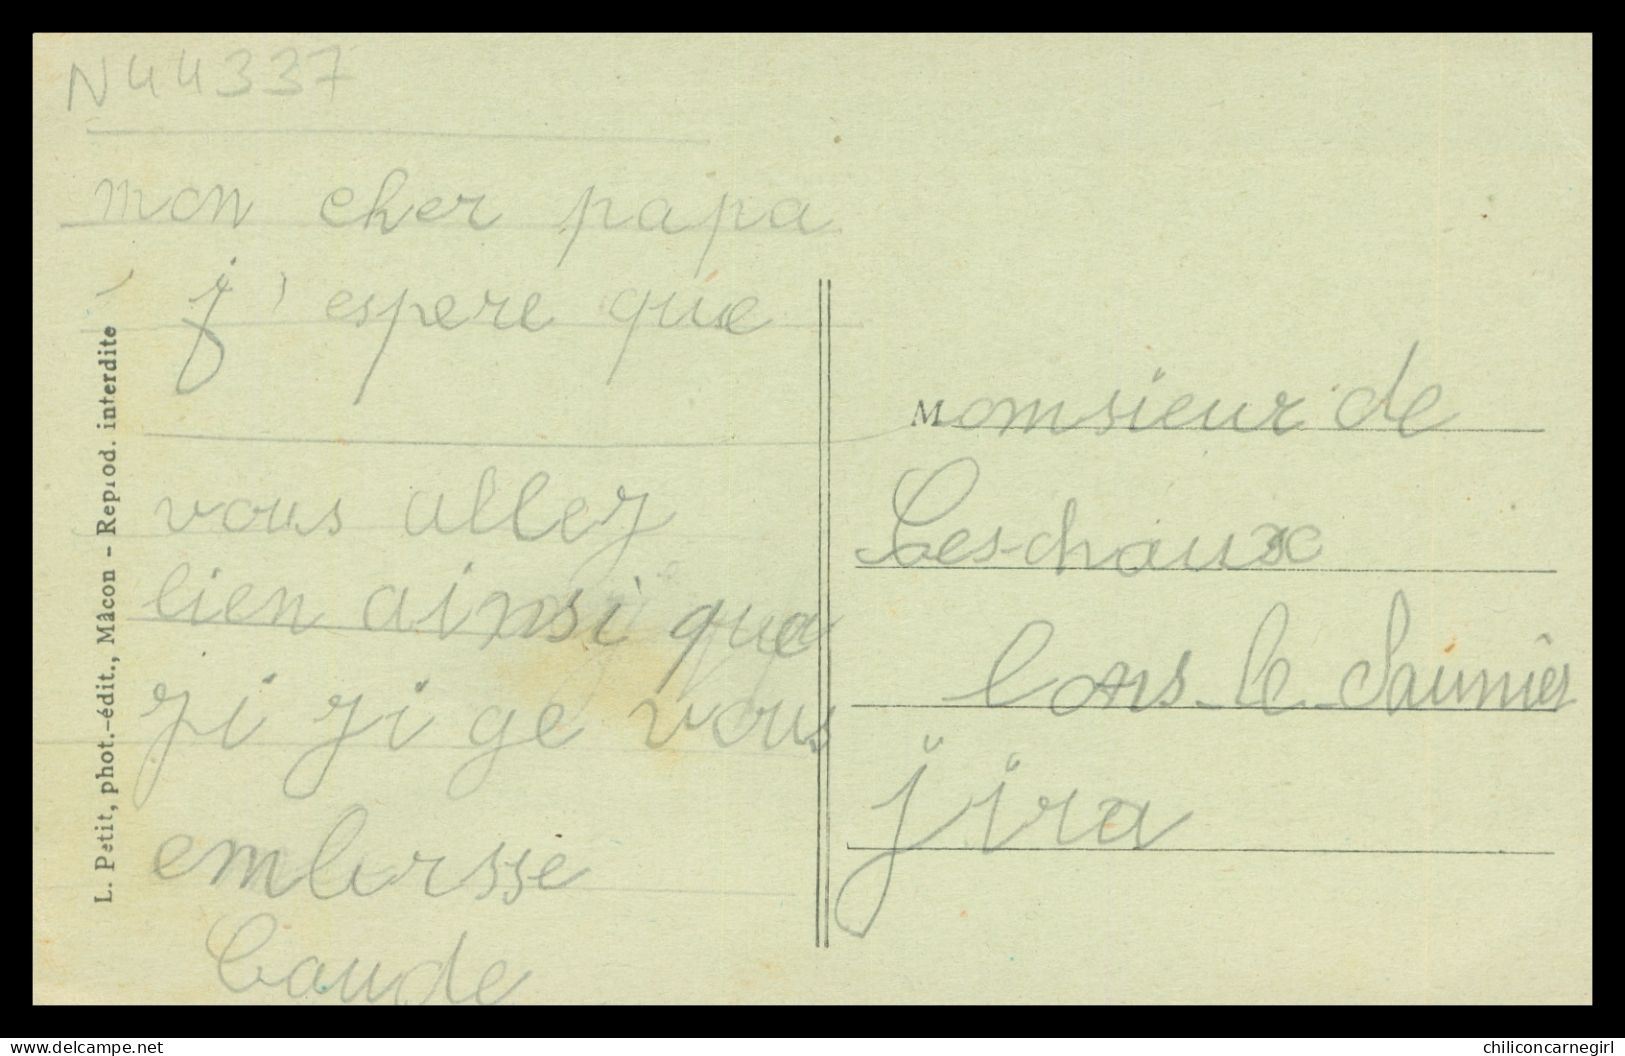 N44337
mon cher papa
j'espere que
vous allez
bien ainsi que
ji ji ge vous
embersse
Caude
L. Petit, phot.-édit., Mâcon - Reprod. interdite
Monsieur de
Leschaux
lons-le-Saunier
jira
www.delcampe.net
chiliconcarnegirl